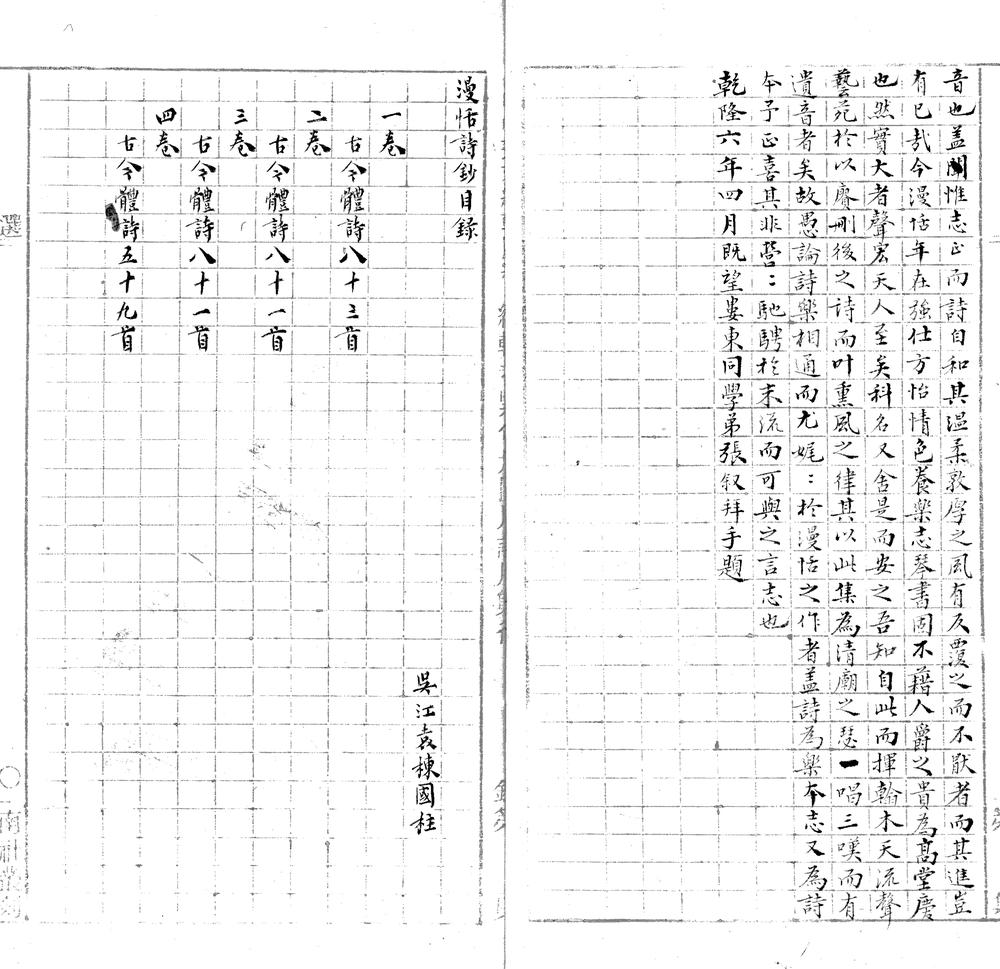 音也盖聞惟志正而詩自和其溫柔敦厚之風有反覆之而不猒者而其進豈
有已哉今漫恬年在強仕方怡情色養樂志琴書固不藉人爵之貴為高堂慶
也然實大者聲宏天人至矣科名又舍是而安之吾知自此而揮翰木天流聲
藝苑於以賡刪後之詩而叶熏風之律其以此集為清廟之瑟一唱三嘆而有
遺音者矣故愚論詩樂相通而尤娓〻於漫恬之作者盖詩為樂本志又為詩
本予正喜其非營〻馳騁於末流而可與之言志也
乾隆六年四月既望婁東同學弟張叙拜手題
漫恬詩鈔目録
吳江袁棟國柱
一卷
古今體詩八十三首
二卷
古今體詩八十一首
三卷
古今體詩八十一首
四卷
古今體詩五十九首
選